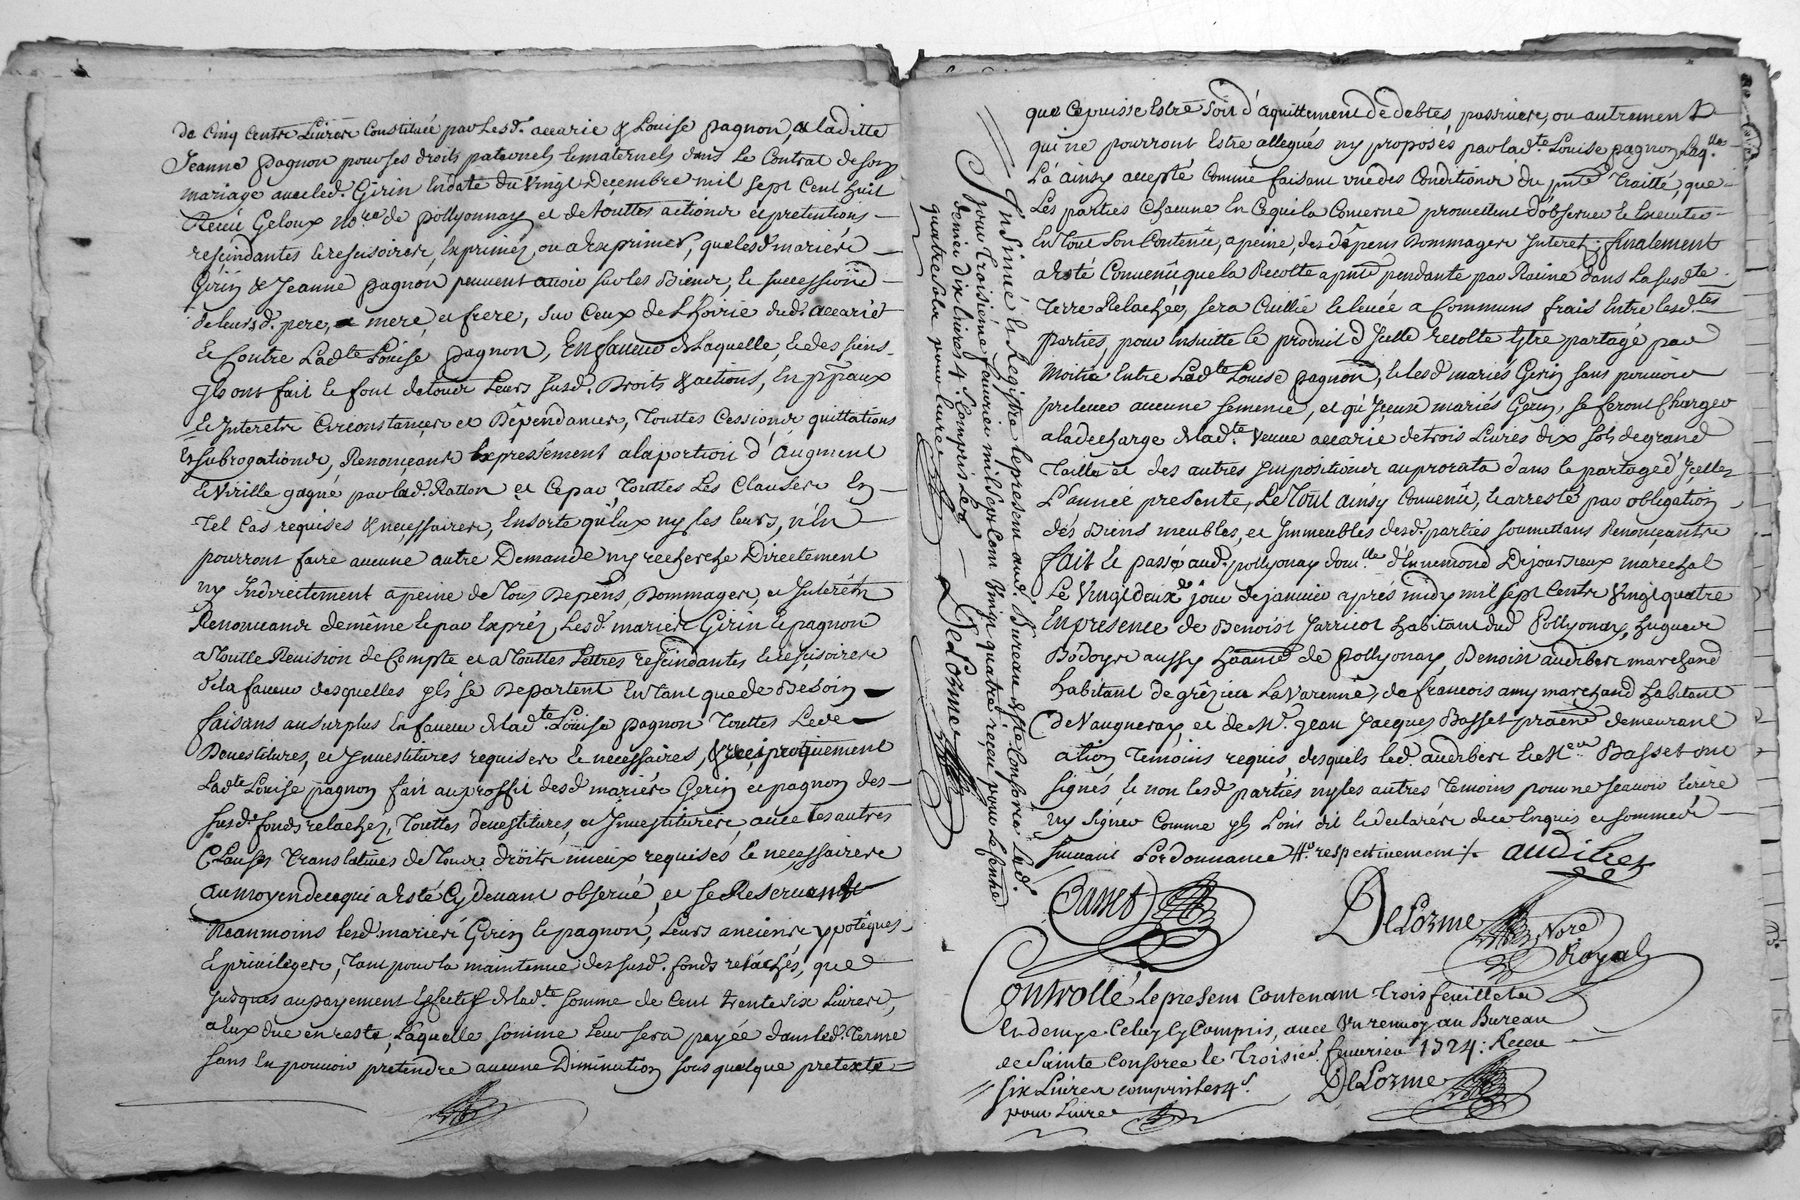 de cinq cents Livres constituée par lesd. accarie & Louise pagnon, a laditte
Jeanne pagnon pour ses droits paternels & maternels dans Le Contrat de son
mariage avec led. Girin en date du Vingt Decembre mil sept Cent huit
Receu Geloux no.re de pollyonnay et de touttes actions et pretentions
rescindantes & rescisoires, Exprimés, ou a Exprimer, que lesd. mariés
Girin & Jeanne pagnon peuvent avoir sur les Biens, & successions
de leursd. pere, mere et frere, sur Ceux de L'hoirie dud. accarie et
& Contre Ladte Louise pagnon, En faveur de Laquelle, & des siens
Ils ont fait & font de tous Leurs susd. Droits & actions, En pp̃aux
& Interets Circonstances et Dépendances, Touttes Cessions quittations
& subrogations, Renonçants Expressément a la portion d'Augment
& Virille gagné par lad. Ratton et Ce par Touttes Les Clauses En
Tel Cas requises & necessaires, Ensorte qu'Eux ny les leurs, n'En
pourront faire aucune autre Demande ny recherche Directement
ny Indirectement a peine de Tous Depens, Dommages, et Interéts
Renonceants de même & par Exprés, Lesd. mariés Girin & pagnon
a Toutte Revision de Compte et a Touttes Lettres rescindantes & rescisoires
de la faveur desquelles yls se Departent En tant que de Besoin
faisans au surplus En faveur de Lad.te Louise pagnon Touttes Les
Devestitures, et Investitures requises & necessaires, & reciproquement
Ladte Louise pagnon fait au proffit desd. mariés Gerin et pagnon des
susd. fonds relachez, Touttes devestitures, et Investitures, avec les autres
Clauses Translatives de Tous droits mieux requises & necessaires
au moyen de ce qui a Esté Cy devant observé, et se Reservants
Neanmoins lesd. mariés Gerin & pagnon, Leurs anciens ypotêques
& privileges, Tant pour la maintenue des susd. fonds relachés, que
Jusques au payement Effectif de Lad.te somme de Cent trente six Livres,
a Eux due en reste, Laquelle somme Leur sera payée dans led. Terme
sans En pouvoir pretendre aucune Diminution sous quelque pretexte
Insinué & Registré le present aud. Bureau de Ste Consorce Led.
jour Troisiéme fevrier mil sept Cent Vingt quatre receu pour Le Centié
denier dix livres 4 s. Compris Les
quatre sols pour livre
DeLorme
que Ce puisse Estre soit d'aquittement de debtes, passives, ou autrement
qui ne pourront Estre allegués ny proposés par lad.te Louise pagnon Laq.lle
L'a ainsy accepté Comme faisant une des Conditions du p̃nt Traitté, que
Les parties Chacune En Ce qui la Concerne promettent d'observer & Executer
En Tout son Contenu, a peine, des dépens Dommages Interets; finalement
a Esté Convenu que la Recolte a pn̄t pendante par Racine dans La susd.te
Terre Relachée, sera Cuillie & levée a Communs frais Entre lesd.tes
parties, pour Ensuitte le produit d'Icelle recolte Estre partagé par
Moitié Entre Lad.te Louise pagnon, & lesd. mariés Gerin sans pouvoir
prelever aucune semence, et qu'Iceux mariés Gerin, se feront Charger
a la decharge de Lad.te Veuve accarie de trois Livres dix sols de grand
Taille et des autres Impositions au prorata dans le partage d'Icelles
L'année presente, Le Tout ainsy Convenu, & arresté par obligation
des Biens meubles, et Immeubles desd. parties soumettans Renonçants
fait & passé aud. pollyonay domlle d'Ennemond Dejoursieux marechal
Le Vingt deuxe jour de janvier aprés midy mil sept Cents Vingt quatre
En presence de Benoist Jarricot habitant dud Pollyonay, hugues
Bodoy aussy haant de pollyonay Benoist audibert marchand
habitant de grêzieu La Varenne, de francois amy marchand habitant
de Vaugneray, et de Mr. Jean Jacques Basset praen demeurant
a Lion Temoins requis desquels led. audibert & Me. Basset ont
signés & non lesd. parties ny les autres Temoins pour ne scavoir Ecrire
ny signer Comme yls L'ont dit & declarés de ce Enquis et sommés
suivant L'ordonnance respectivement audibert
Basset DeLorme Nore
Royal
Controllé le present Contenant Trois feuillets
En demye Celuy Cy Compris, avec Un renvoy au Bureau
de Sainte Consorce le Troisie. fevrier 1724: Receu
six Livres compris les 4 s. DeLorme
pour Livre